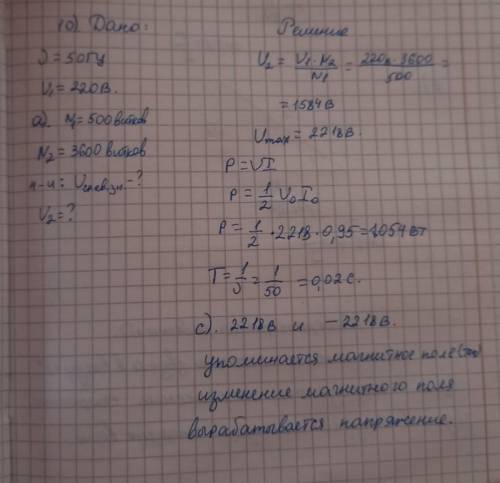 10) Дано:
Решение
ν = 50 Гц
U₁ = 220 В.
a). N₁ = 500 витков
N₂ = 3600 витков
н-и: U -?
U₂ = ?
U₂ = U₁·N₂/N1 = 220 · 3600/500 =
= 1584 В
Umax = 2218 В.
P = VI
P = 1/2 V₀ I₀
P = 1/2 · 2218 · 0,95 = 1054 Вт
T = 1/ν = 1/50 = 0,02 с.
c). 2218 В и − 2218 В.
упоминается магнитное поле
изменение магнитного поля
вырабатывается напряжение.